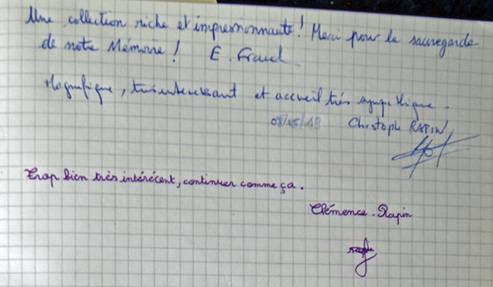 Une collection riche et impressionnante ! Merci pour la sauvegarde
de notre Mémoire ! E.
Magnifique, très intéressant et accueil très sympathique.
Christoph RAPIN
Trop bien très intérécent, continuer comme ça.
Clémence Rapin